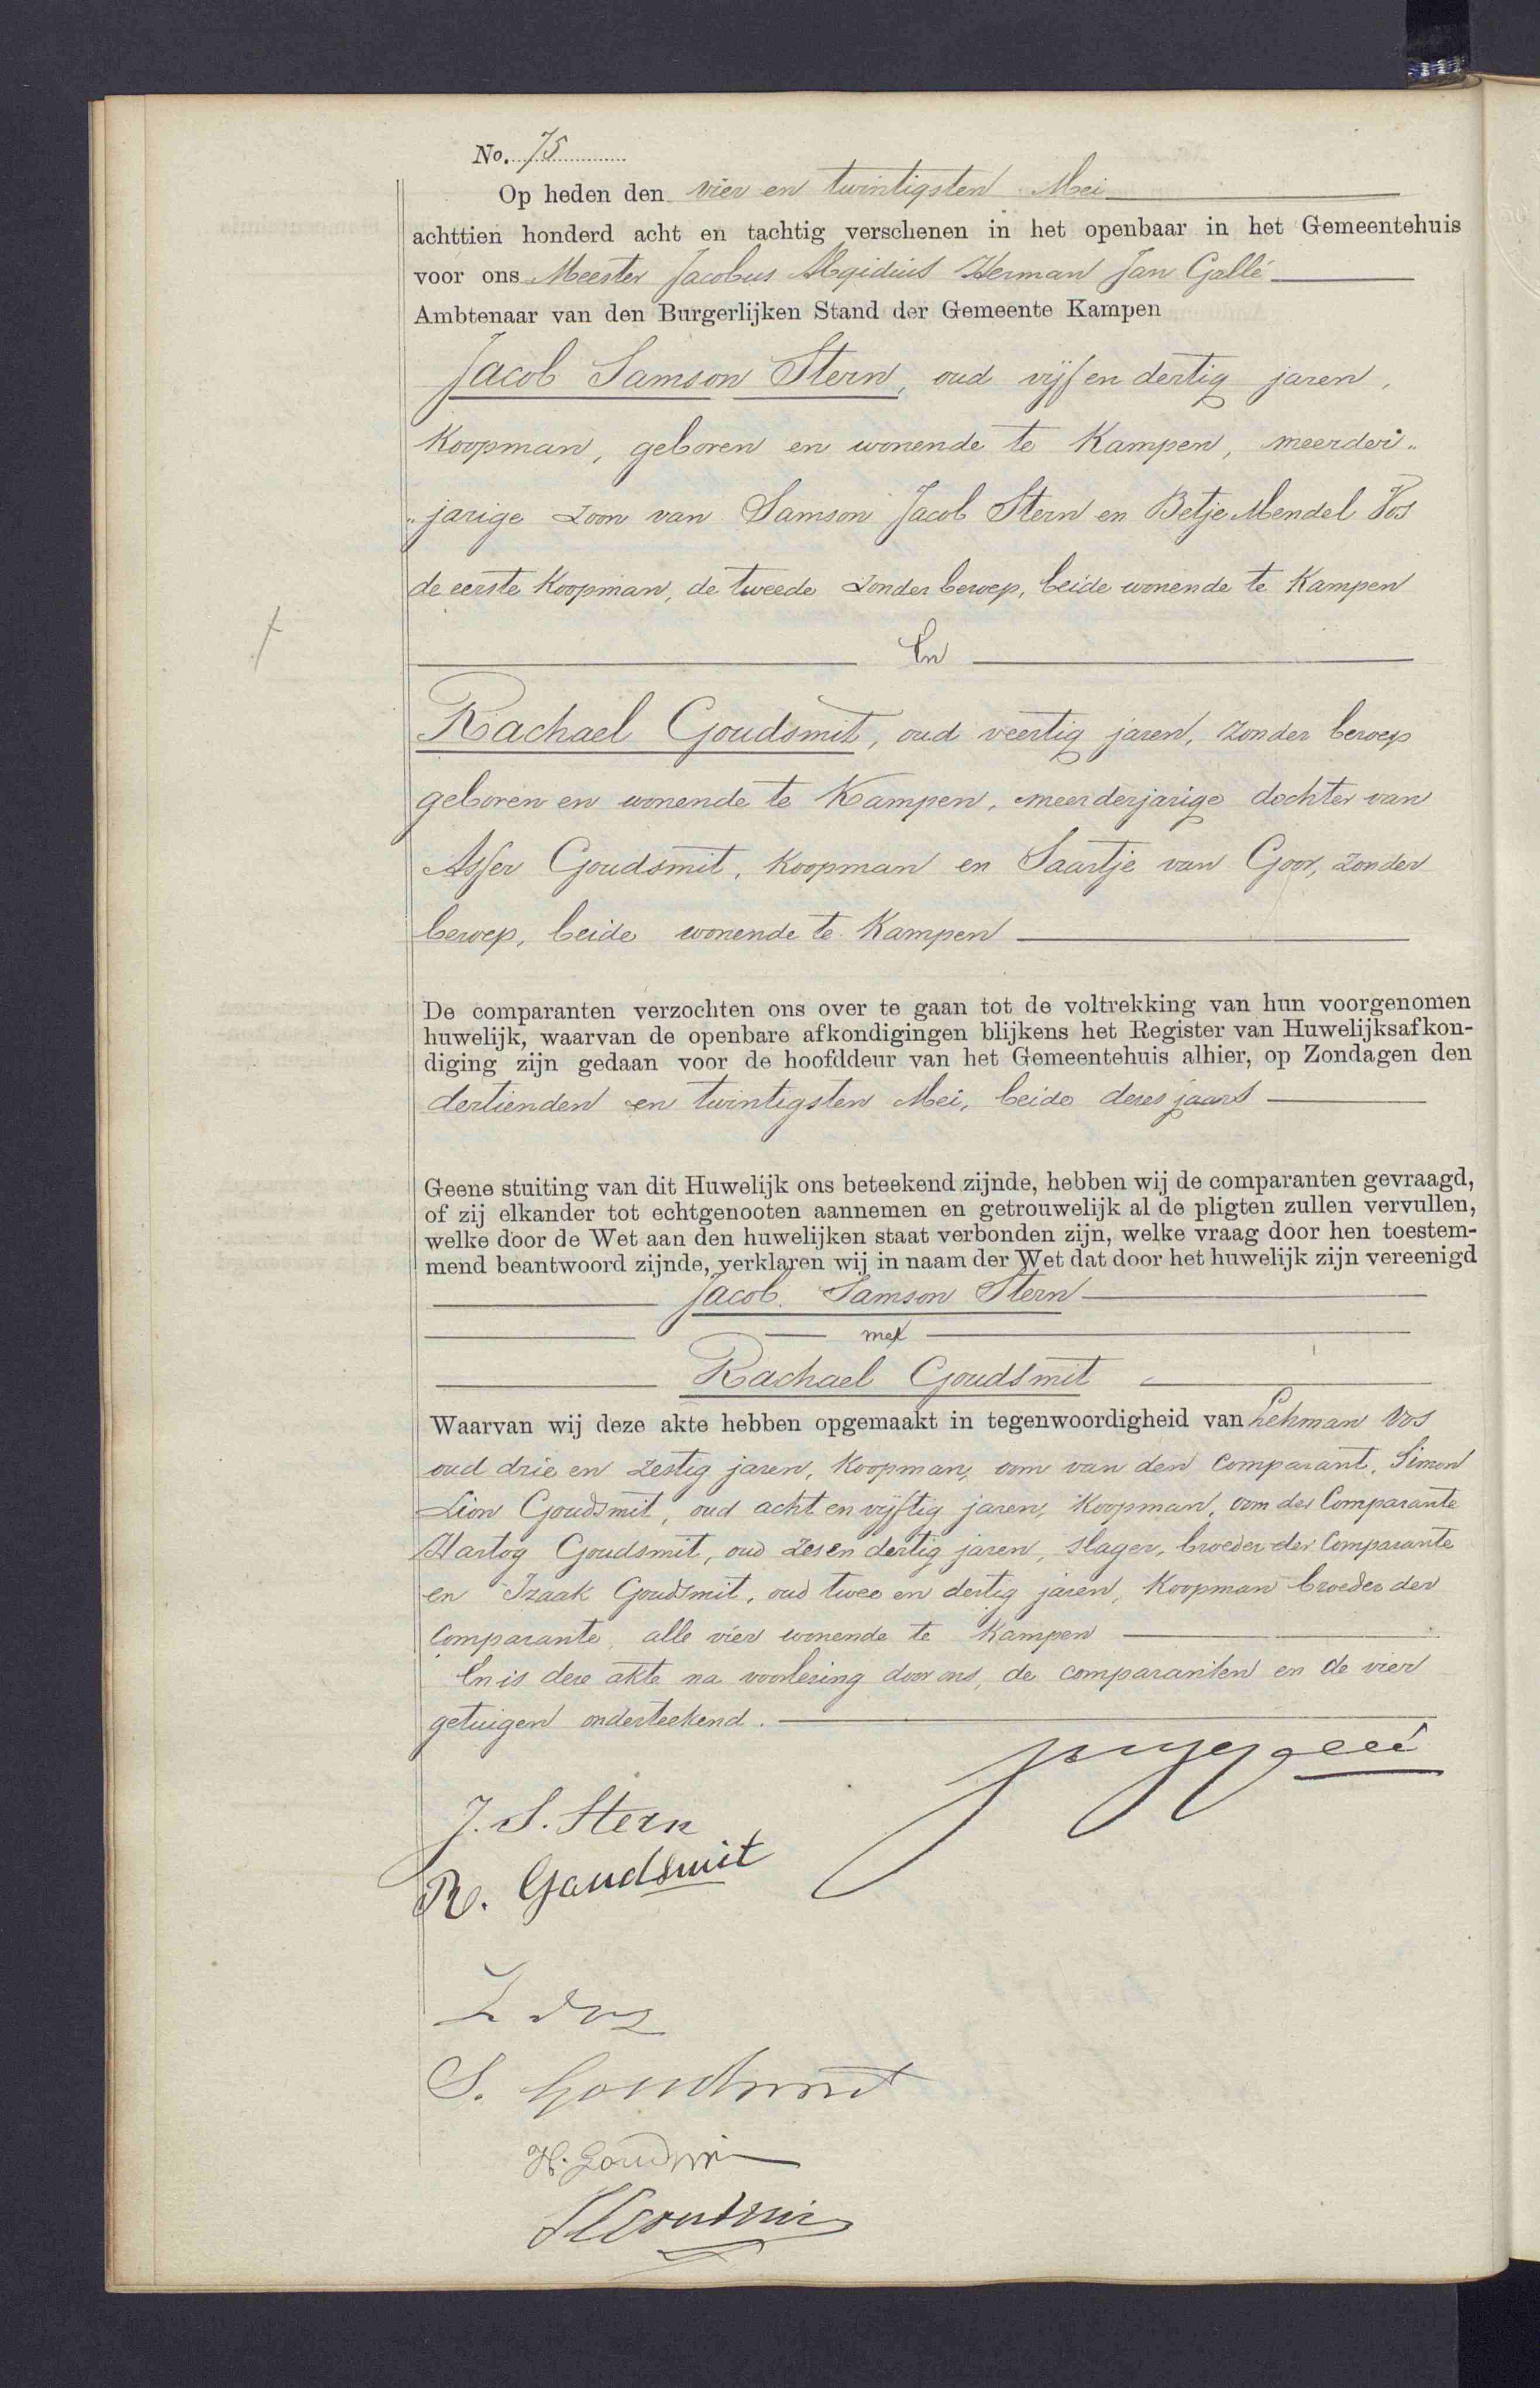 No. 75
Op heden den vier en twintigsten Mei
achttien honderd acht en tachtig verschenen in het openbaar in het Gemeentehuis
voor ons Meester Jacobus Aegidius Herman Jan Gallé
Ambtenaar van den Burgerlijken Stand der Gemeente Kampen
Jacob Samson Stern, oud vijf en dertig jaren,
Koopman, geboren en wonende te Kampen, meerder„
„jarige zoon van Samson Jacob Stern en Betje Mendel Vos
de eerste Koopman, de tweede zonder beroep, beide wonende te Kampen
En
Rachael Goudsmit, oud veertig jaren, zonder beroep
geboren en wonende te Kampen, meerderjarige dochter van
Asser Goudsmit, Koopman en Saartje van Goor, zonder
beroep, beide wonende te Kampen
De comparanten verzochten ons over te gaan tot de voltrekking van hun voorgenomen
huwelijk, waarvan de openbare afkondigingen blijkens het Register van Huwelijksafkon-
diging zijn gedaan voor de hoofddeur van het Gemeentehuis alhier, op Zondagen den
dertienden en twintigsten Mei, beide dezes jaars
Geene stuiting van dit Huwelijk ons beteekend zijnde, hebben wij de comparanten gevraagd,
of zij elkander tot echtgenooten aannemen en getrouwelijk al de pligten zullen vervullen,
welke door de Wet aan den huwelijken staat verbonden zijn, welke vraag door hen toestem-
mend beantwoord zijnde, verklaren wij in naam der Wet dat door het huwelijk zijn vereenigd
Jacob Samson Stern
met
Rachael Goudsmit
Waarvan wij deze akte hebben opgemaakt in tegenwoordigheid van Lehman Vos
oud drie en zestig jaren, Koopman, oom van den Comparant, Simon
Lion Goudsmit, oud acht en vijftig jaren, Koopman, oom der Comparante
Hartog Goudsmit, oud zes en dertig jaren, slager, broeder der Comparante
en Izaak Goudsmit, oud twee en dertig jaren, Koopman broeder der
Comparante, alle vier wonende te Kampen
En is deze akte na voorlezing door ons, de comparanten en de vier
getuigen onderteekend.
J. S. Stern
R. Goudsmit
L Vos
S. Goudsmit
H. Goudsmit